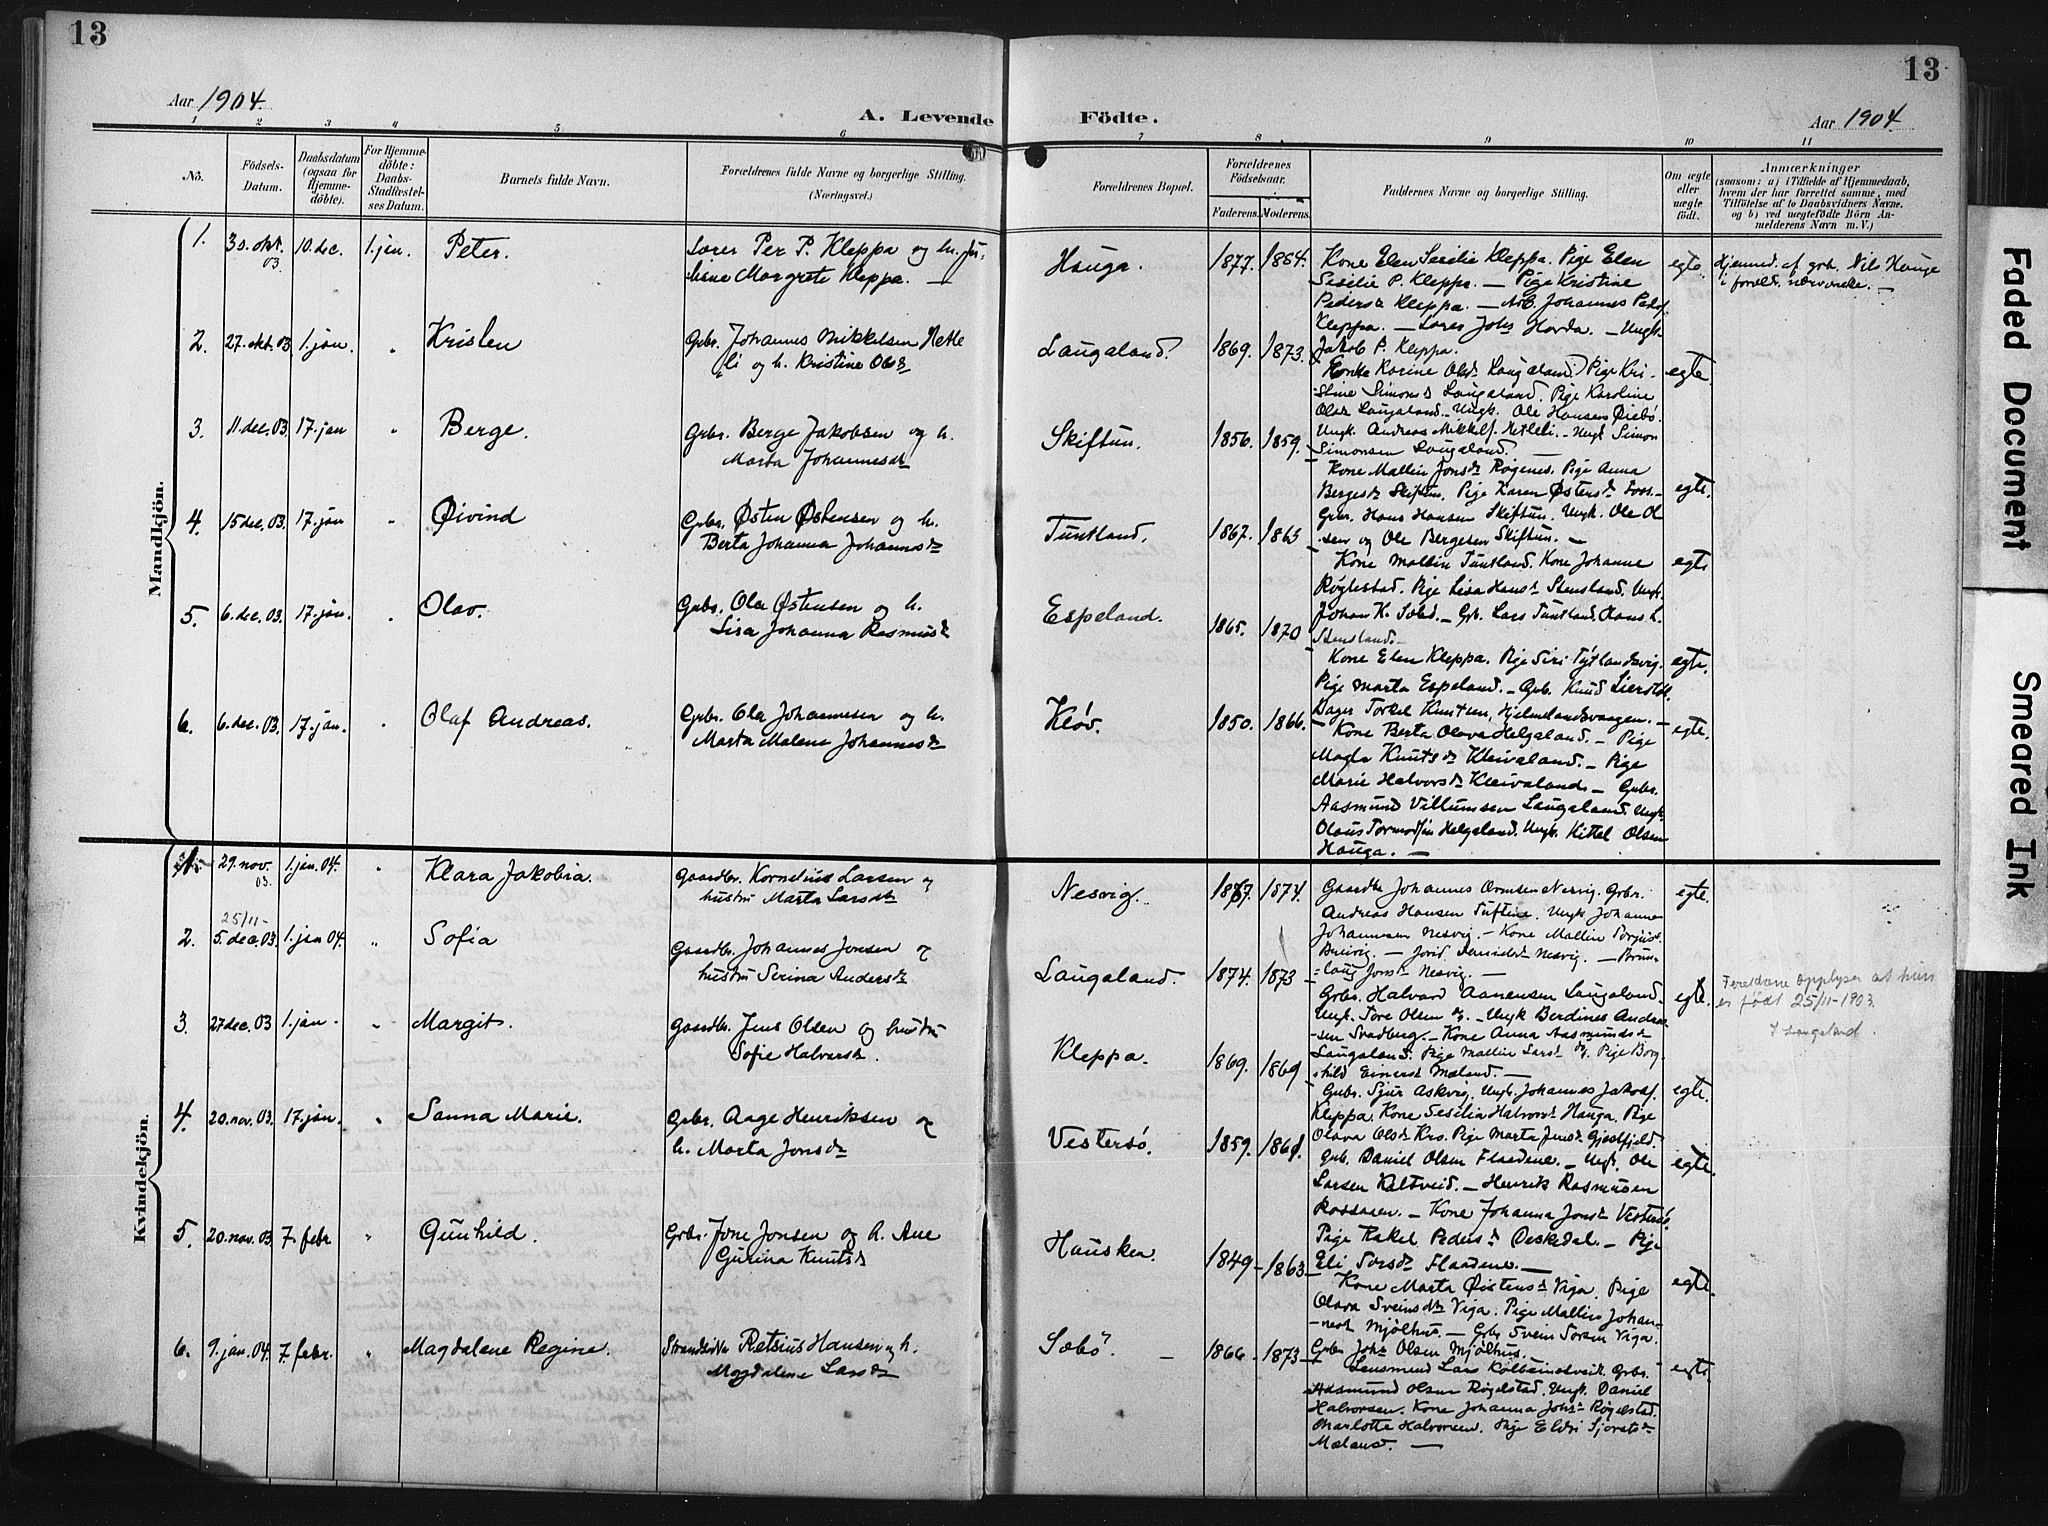 13
13
Aar 1904.
A. Levende Födte.
Aar 1904
1 2 3 4 5 6 7 8 9 10 11
No.
Födsels-Datum.
Daabsdatum (ogsaa for Hjemme-döbte).
For Hjemme-döbte: Daabs-Stadfæstel-ses Datum.
Barnets fulde Navn.
Forældrenes fulde Navne og borgerlige Stilling. (Næringsvei.)
Forældrenes Bopæl.
Forældrenes Födselsaar.
Faderens. Moderens.
Faddernes Navne og borgerlige Stilling.
Om ægte eller uægte født.
Anmærkninger
(saasom: a) i Tilfælde af Hjemmedaab,
hvem der har forrettet samme, med
Tilföielse af to Daabsvidners Navne.
og b) ved uægtefödte Börn An-
melderens Navn m. V.)
Mandkjön.
1. 30. okt. 03. 10. dec. 1. jan. Peter.
Lærer Per P. Kleppa og h.
Margrete Kleppa. —
Hauga. 1877. 1864.
Kone Elen Sesilie Kleppa. Pige Elen
Sesilie P. Kleppa. — Pige Kristine
Pedersd. Kleppa. — Arb. Johannes Peders.
Kleppa. — Lærer Johs Horda. — Ungk.
Jakob P. Kleppa.
egte. Hjemmed. af grb. Nils Hauge
i foreld. nærværelse. —
2. 27. okt. 03 1. jan. " Kristen
Grbr. Johannes Mikkelsen Netle
li og h. Kristine Olsdr
Laugaland. 1869. 1873.
Enke Karine Olsdr Laugaland. Pige Kri-
stine Simonsd Laugaland. Pige Karoline
Olsdr Laugaland. Ungk. Ole Hansen Øiebø.
Ungk. Andreas Mikkels. Netleli. — Ungk Simon
Simonsen Laugaland. —
egte.
3. 11. dec. 03. 17. jan " Berge.
Grbr. Berge Jakobsen og h.
Marta Johannesdr
Skiftun. 1856. 1859.
Kone Mallin Jonsdr Røgenes. Pige Anna
Bergesdr Skiftun. Pige Karen Østensdr
Grbr. Hans Hansen Skiftun. Ungk. Ole Ol
sen og Ole Bergesen Skiftun. —
egte.
4. 15 dec. 03. 17. jan " Øivind
Grbr. Østen Østensen og h.
Berta Johanna Johannsdr
Tuntland. 1867. 1865
Kone Mallin Tuntland. Kone Johanne
Røglestad. Pige Lisa Hansdr Stensland. Ungk.
Johan K. Sæbø. — Grb. Lars Tuntland. Olaus L.
Stensland. —
egte
5. 6. dec. 03. 17. jan. " Olav.
Grbr. Ola Østensen og h.
Lisa Johanna Rasmusdr
Espeland. 1865. 1870
Kone Elen Kleppa. Pige Siri Tytlandsvig.
Pige Marta Espeland. — Grb. Knud
Bager Torkel Knutsen, Hjelmelandsvaagen. —
egte.
6. 6. dec. 03. 17. jan. " Olaf Andreas.
Grbr. Ola Johannesen og h.
Marta Malene Johannesdr
Kløv. 1850. 1866.
Kone Berta Olava Helgaland. — Pige
Magla Knutsdr Kleivaland. — Pige
Marie Halvorsdr Kleivaland. — Grbr.
Aasmund Villumsen Laugaland. Ungk.
Olaus Tormods/en Helgaland. Ungk. Kittel Olsen
Hauga. —
egte.
Kvindekjön.
1. 29. nov. 03. 1. jan. 04. " Klara Jakobia.
Gaardbr. Kornelius Larsen og
hustru Marta Larsdr
Nesvig. 1867. 1874.
Gaardbr Johannes Ormsen Nesvig. Grbr.
Andreas Hansen Tuftene. Ungk. Johannes
Johannesen Nesvig. — Kone Mallin
Nesvig. —
Jonsdr Nesvig. —
egte.
25/11-
2. 5. dec. 03. 1. jan 04. " Sofia
Gaardbr. Johannes Jonsen og
hustru Serina Andersdr
Laugaland. 1874. 1873
Grbr. Halvard Aanensen Laugaland.
Ungk. Tore Olsen do. — Ungk Berdines Andrea
sen Svadberg. — Kone Anna Aasmundsdr
Laugaland. Pige Mallin Larsdr do. Pige Borg
hild Einersdr Mæland. —
egte. Foreldrene opplyser at hun
er født 25/11-1903.
i Laugaland.
3. 27 dec. 03 1. jan " Margit.
Gaardbr. Jens Olsen og hustru
Sofie Halvorsdr.
Kleppa. 1869. 1869
Grbr. Sjur Askvig. Ungk. Johannes Jakobs.
Kleppa. Kone Sesilia Halvorsdr Hauga. Pige
Olava Olsdr Kro. Pige Marta Jensdr
egte.
4. 20. nov. 03. 17. jan. " Sanna Marie.
Grbr. Aage Henriksen og
h. Marta Jonsdr
Vestersø. 1859. 1861.
Grb. Daniel Olsen Flaadene. — Ungk. Ole
Larsen Kaltveid. — Henrik Rasmussen
— Kone Johanna Jonsdr Vestersø
Pige Rakel Pedersdr Øeskedal. — Pige
Eli Flaadene. —
egte.
5. 20. nov. 03. 7. febr. " Gunhild.
Grbr. Jone Jonsen og h. Ane
Gurina Knutsdr
Hausken. 1849 - 1863 -
Kone Marta Øistensdr Viga. Pige
Olava Sveinsdtr Viga. Pige Mallin Johan-
nesdr Mjølhus. — Grbr. Svein Viga.
Grbr Johs Olsen Mjølhus. —
egte.
6. 9. jan. 04. 7. febr. " Magdalene Regine.
Strandsidder Retsius Hansen og h.
Magdalene Larsdr
Sæbø. — 1866 - 1873 -
Lensmand Lars Kolbeinstveit. Grbr.
Aasmund Olsen Røgelstad. Ungk. Daniel
Halvorsen. Kone Johanna Johsdr Røgelstad.
Charlotte Halvorsen. Pige Eldri
Mæland. —
egte.
Faded Document
Smeared Ink